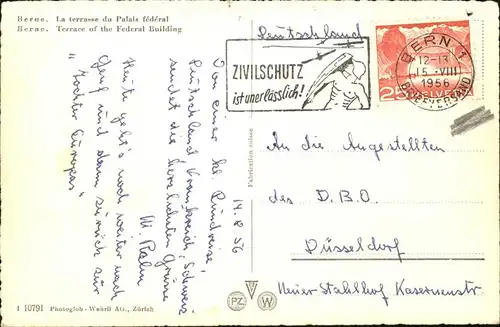 Berne. La terrasse du Palais fédéral
Berne. Terrace of the Federal Building
Deutschland
ZIVILSCHUTZ
ist unerlässlich!
BERN 1
12-13
15.-VIII
1956
BRIEFVERSAND
HELVETIA
14.8.56
Von einer kl. Rundreise,
Deutschland, Frankreich, Schweiz
sendet die herzlichsten Grüsse
M. Palm
Heute geht's noch weiter nach
Genf und dann zurück zur
"Tochter Europas"
An die Angestellten
des D.B.O.
Düsseldorf
Neuer-Stahlhof Kasernenstr.
Fabrication suisse
PZ W
1 10791 Photoglob-Wehrli AG., Zürich